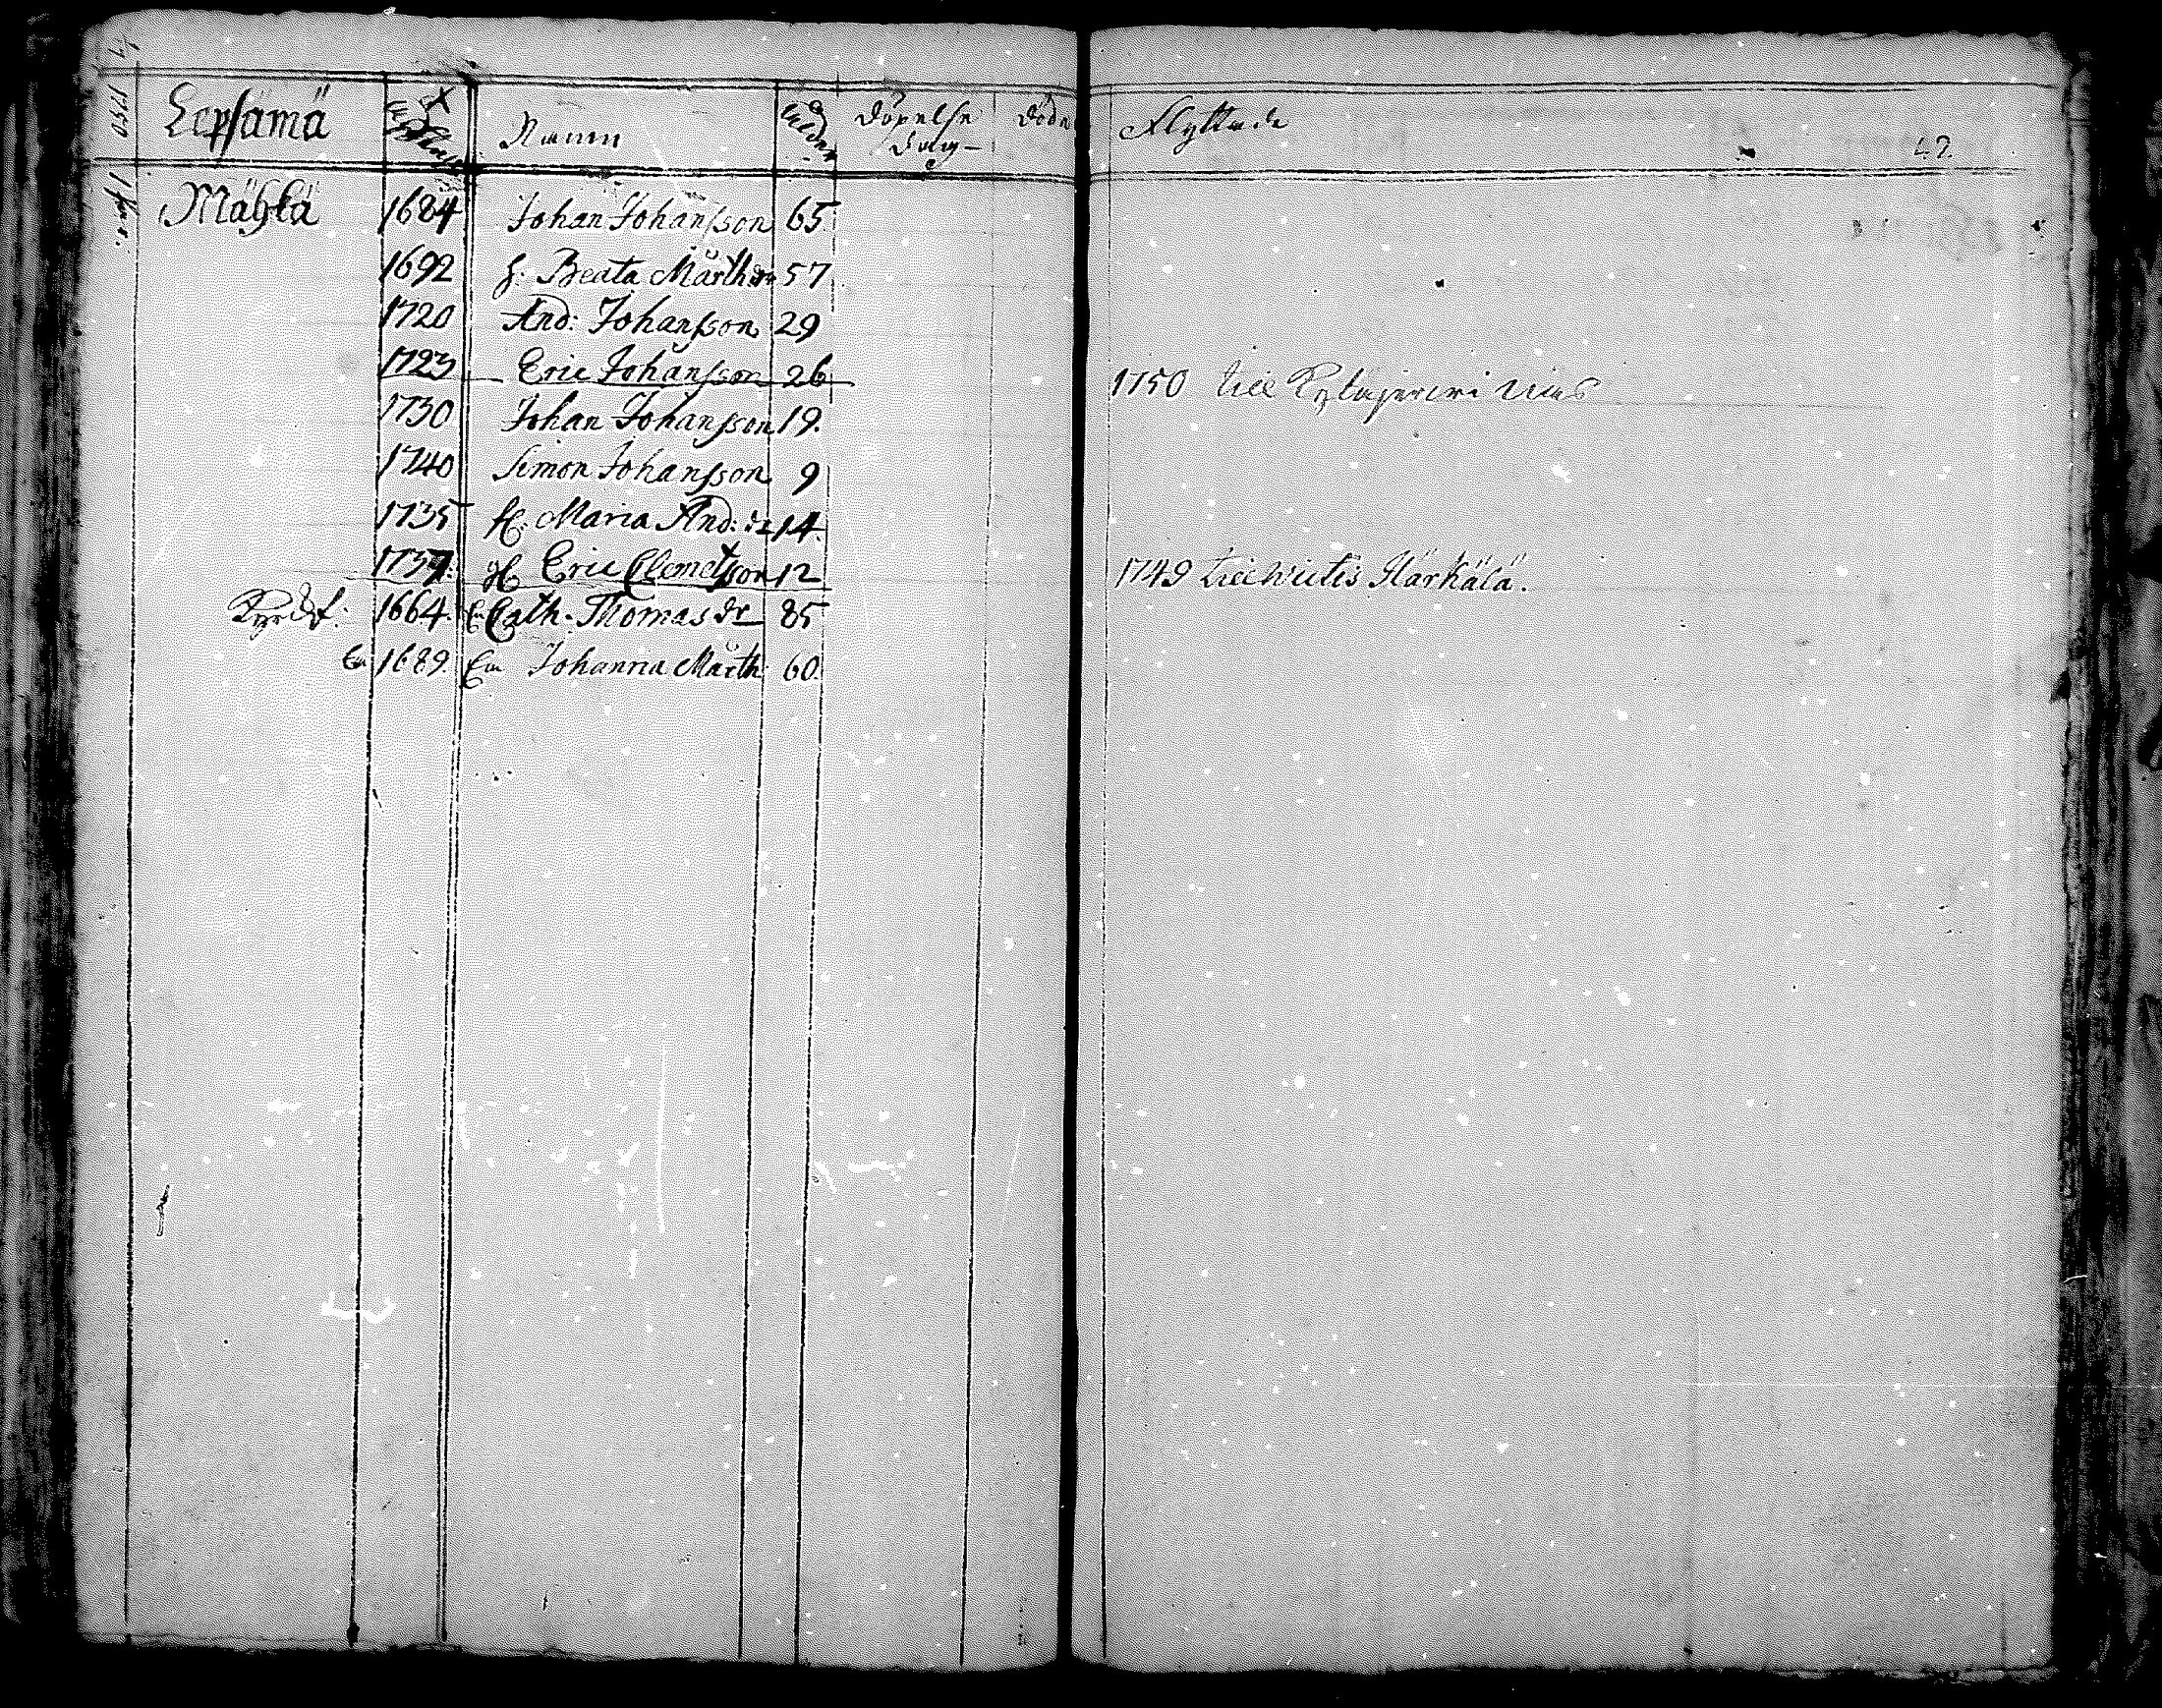 1750
Lepsämä
Namn
Ålder
Döpelse
Dag
Döde
Flyttade
47.
Mähkä 1684 Johan Johansson 65
1692 h: Beata Märth:dr 57
1720 And: Johansson 29
1723 Eric Johansson 26 1750 till
1730 Johan Johansson 19.
1740 Simon Johansson 9
1735 H: Maria And: dr 14.
1737. H Eric Clemetsson 12 1749 till Wictis Härkälä.
1664. En Cath. Thomas dr 85
En 1689. En Johanna Märth: 60.